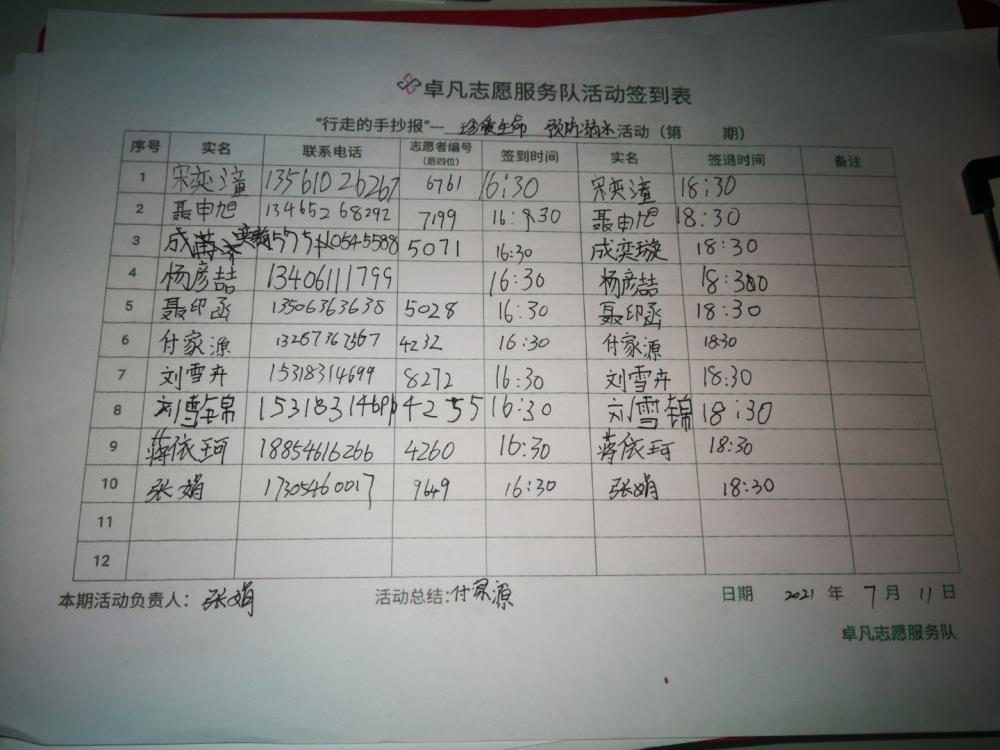 卓凡志愿服务队活动签到表
“行走的手抄报”— 珍爱生命 预防溺水活动（第 期）
序号 实名 联系电话 志愿者编号（后四位） 签到时间 实名 签退时间 备注
1 宋奕潼 13561026267 6761 16:30 宋奕潼 18:30
2 聂申旭 13465268292 7199 16:30 聂申旭 18:30
3 5071 16:30 成奕璇 18:30
4 杨彦喆 13406111799 16:30 杨彦喆 18:30
5 聂印函 13506363638 5028 16:30 聂印函 18:30
6 付家源 13267367567 4232 16:30 付家源 18:30
7 刘雪卉 15318314699 8272 16:30 刘雪卉 18:30
8 刘雪锦 4255 16:30 刘雪锦 18:30
9 蒋依珂 18854616266 4260 16:30 蒋依珂 18:30
10 张娟 17305460017 9649 16:30 张娟 18:30
11
12
本期活动负责人：张娟 活动总结：付家源 日期 2021 年 7 月 11 日
卓凡志愿服务队